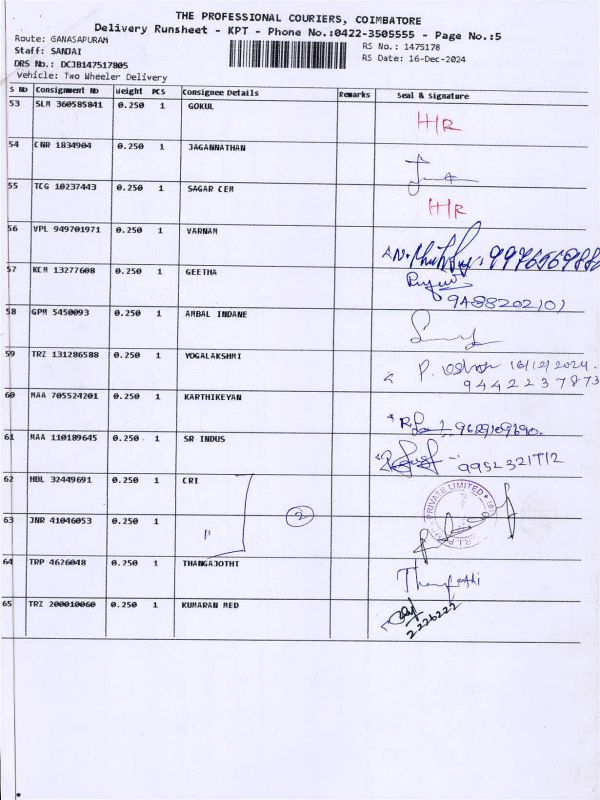 THE PROFESSIONAL COURIERS, COIMBATORE
Delivery Runsheet - KPT - Phone No.:0422-3505555 - Page No.:5
Route: GANASAPURAM RS No.: 1475178
Staff: SANJAI RS Date: 16-Dec-2024
DRS No.: DCJB147517805
Vehicle: Two Wheeler Delivery
S NO Consignment NO Weight PCS Consignee Details Remarks Seal & Signature
53 SLM 360585841 0.250 1 GOKUL H/R
54 CNR 1834904 0.250 1 JAGANNATHAN
55 TCG 10237443 0.250 1 SAGAR CEM H/R
56 VPL 949701971 0.250 1 VARNAM
57 KCM 13277608 0.250 1 GEETHA 9488202101
58 GPM 5450093 0.250 1 AMBAL INDANE
59 TRZ 131286588 0.250 1 YOGALAKSHMI P. 16/12/2024.
9442237873
60 MAA 705524201 0.250 1 KARTHIKEYAN
61 MAA 110189645 0.250 1 SR INDUS 9952321712
62 HBL 32449691 0.250 1 CRI PRIVATE LIMITED
63 JNR 41046053 0.250 1 " 2
64 TRP 4626048 0.250 1 THANGAJOTHI
65 TRZ 200010060 0.250 1 KUMARAN MED
2226222